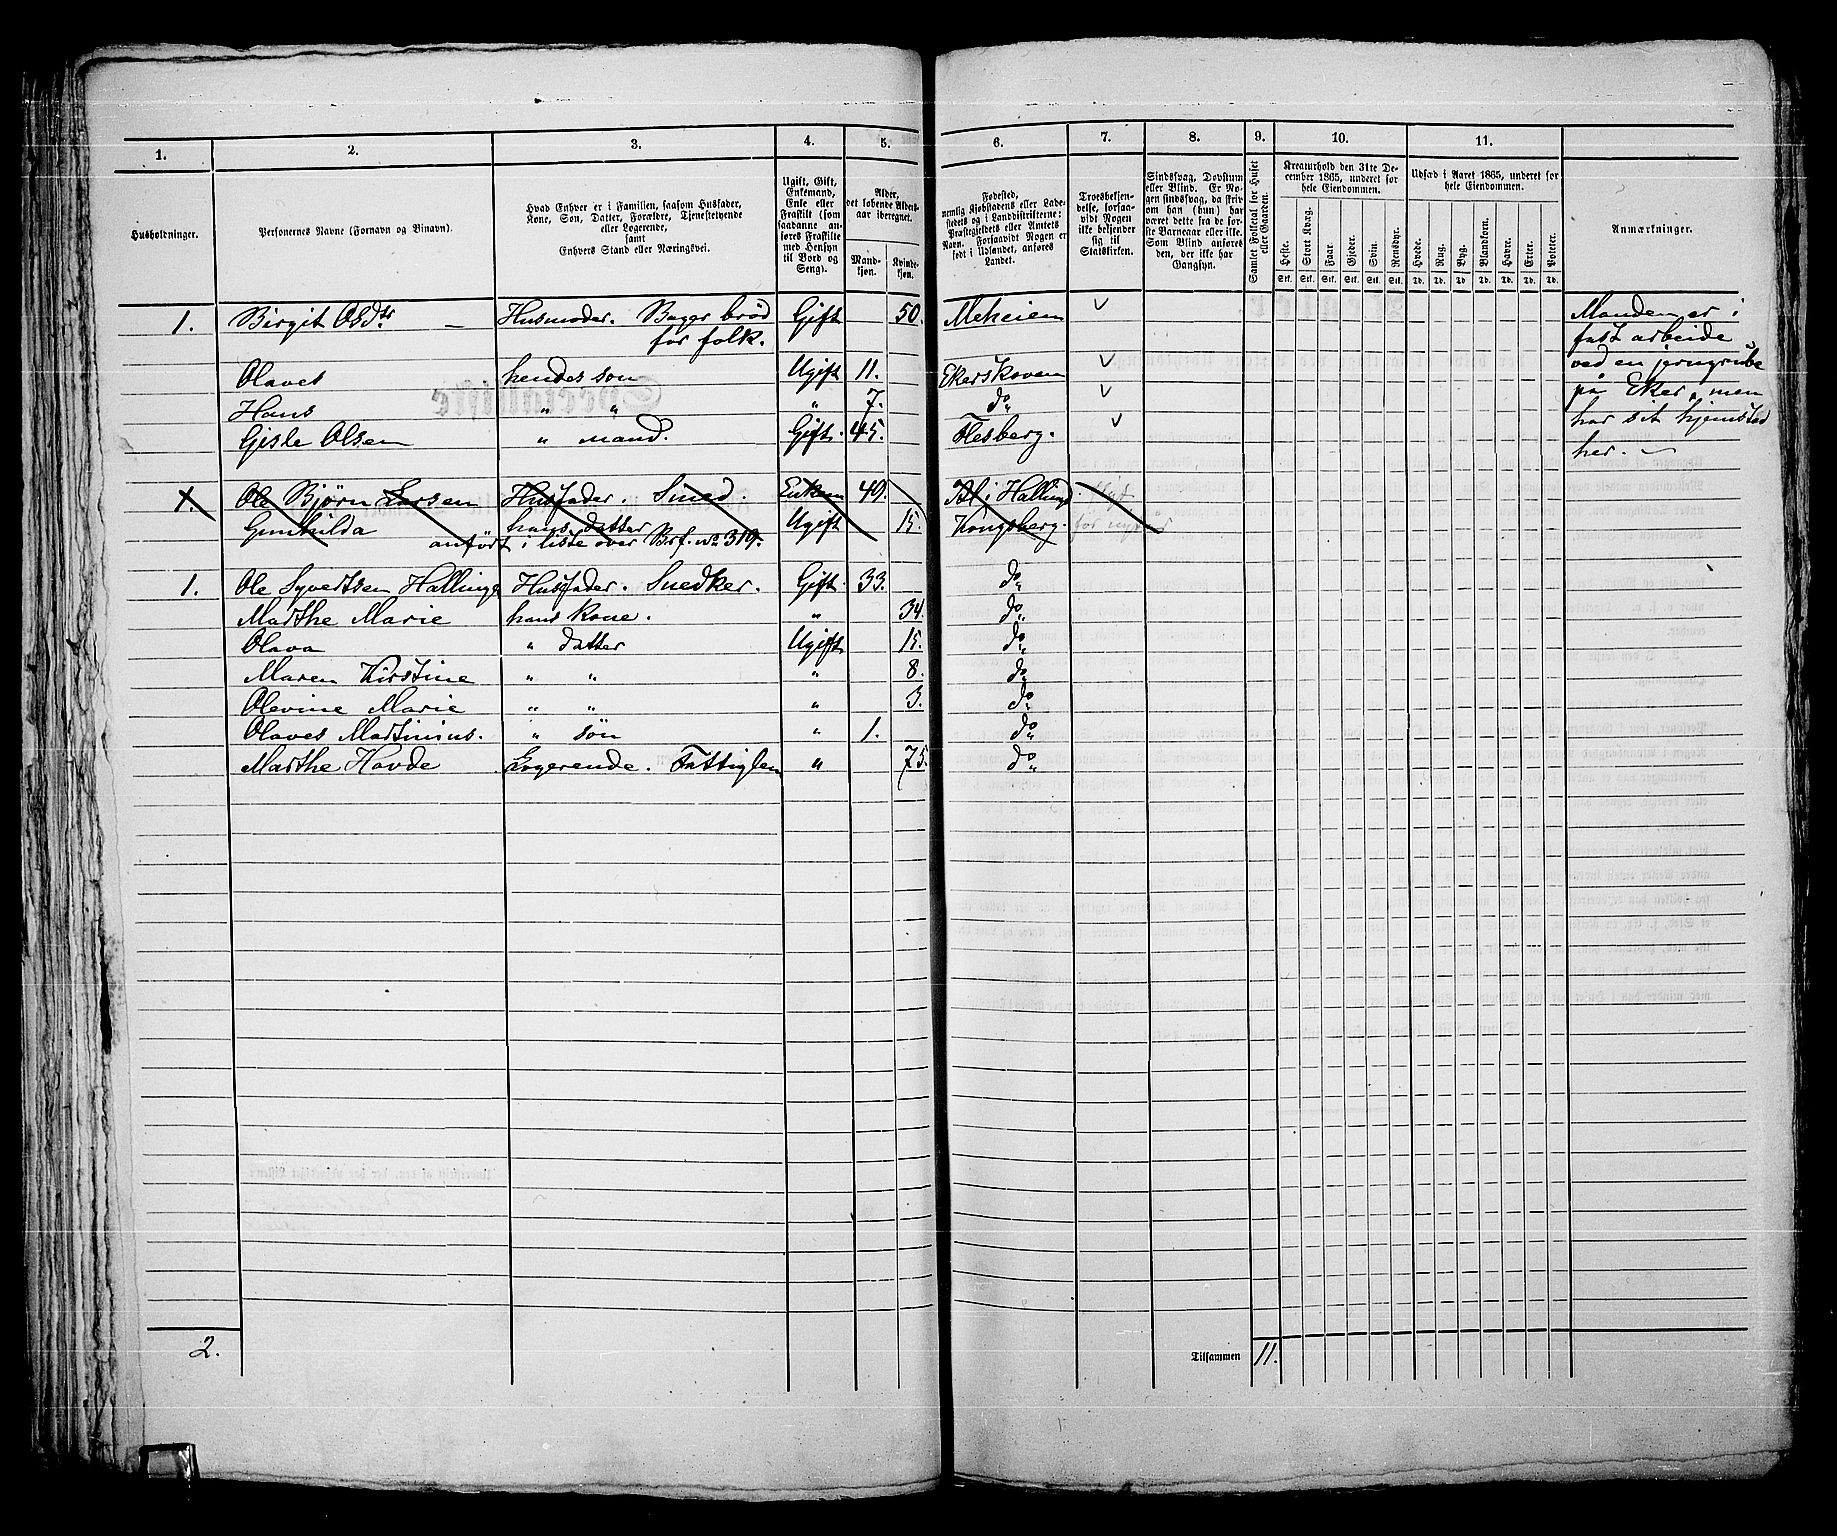 1. 2. 3. 4. 5. 6. 7. 8. 9. 10. 11.
Husholdninger.
Personernes Navne (Fornavn og Binavn).
Hvad Enhver er i Familien, saasom Husfader,
Kone, Søn, Datter, Forældre, Tjenestetyende
eller Logerende,
samt
Enhvers Stand eller Næringsvei.
Ugift, Gift,
Enkemand,
Enke eller
Fraskilt (som
saadanne an-
føres Fraskilte
med Hensyn
til Bord og
Seng).
Alder,
det løbende Alders-
aar iberegnet.
Mand-
kjøn.
Kvinde-
kjøn.
Fødested,
nemlig Kjøbstadens eller Lade-
stedets og i Landdistrikterne:
Præstegjeldets eller Amtets
Navn. Forsaavidt Nogen er
født i Udlandet, anføres
Landet.
Troesbekjen-
delse, forsaa-
vidt Nogen
ikke bekjender
sig til
Statskirken.
Sindssvag, Døvstum
eller Blind. Er No-
gen sindssvag, da skriv
om han (hun) har
været dette fra de før-
ste Barneaar eller ikke.
Som Blind anføres
den, der ikke har
Gangsyn.
Samlet Folketal for Huset
eller Gaarden.
Kreaturhold den 31te De-
cember 1865, underet for
hele Eiendommen.
Heste. Stort Kvæg. Faar. Gjeder. Svin. Rensdyr.
Stk. Stk. Stk. Stk. Stk. Stk.
Udsæd i Aaret 1865, underet for
hele Eiendommen.
Hvede. Rug. Byg. Blandkorn. Havre. Erter. Poteter.
Td. Td. Td. Td. Td. Td. Td.
Anmærkninger.
1. Birgit Olsdtr – Husmoder. Bager brød Gift 50. Meheien
for folk.
Olaves hendes søn Ugift 11. Ekerskoven
Hans " " " 7. do
Gisle Olsen " mand. Gift. 45. Flesberg.
Manden er i
fast arbeide
ved en jerngrube
på Eker, men
har sit hjemsted
her. –
1. Ole Bjørn Larsen Husfader. Smed. Enkem 49. Ål i Hallingd.
Gunhilda hans datter Ugift 15. Kongsberg.
anført i liste over Brf. No 319.
1. Ole Syvertsen Hallinge Husfader. Snedker. Gift. 33. do
Marthe Marie hans kone. " 34. do
Olava " datter Ugift 15. do
Maren Kirstine " " " 8. do
Olevine Marie " " " 3. do
Olaves Martinius. " søn " 1. do
Marthe Hovde Logerende. Fattiglem " 75. do
2.
Tilsammen 11.